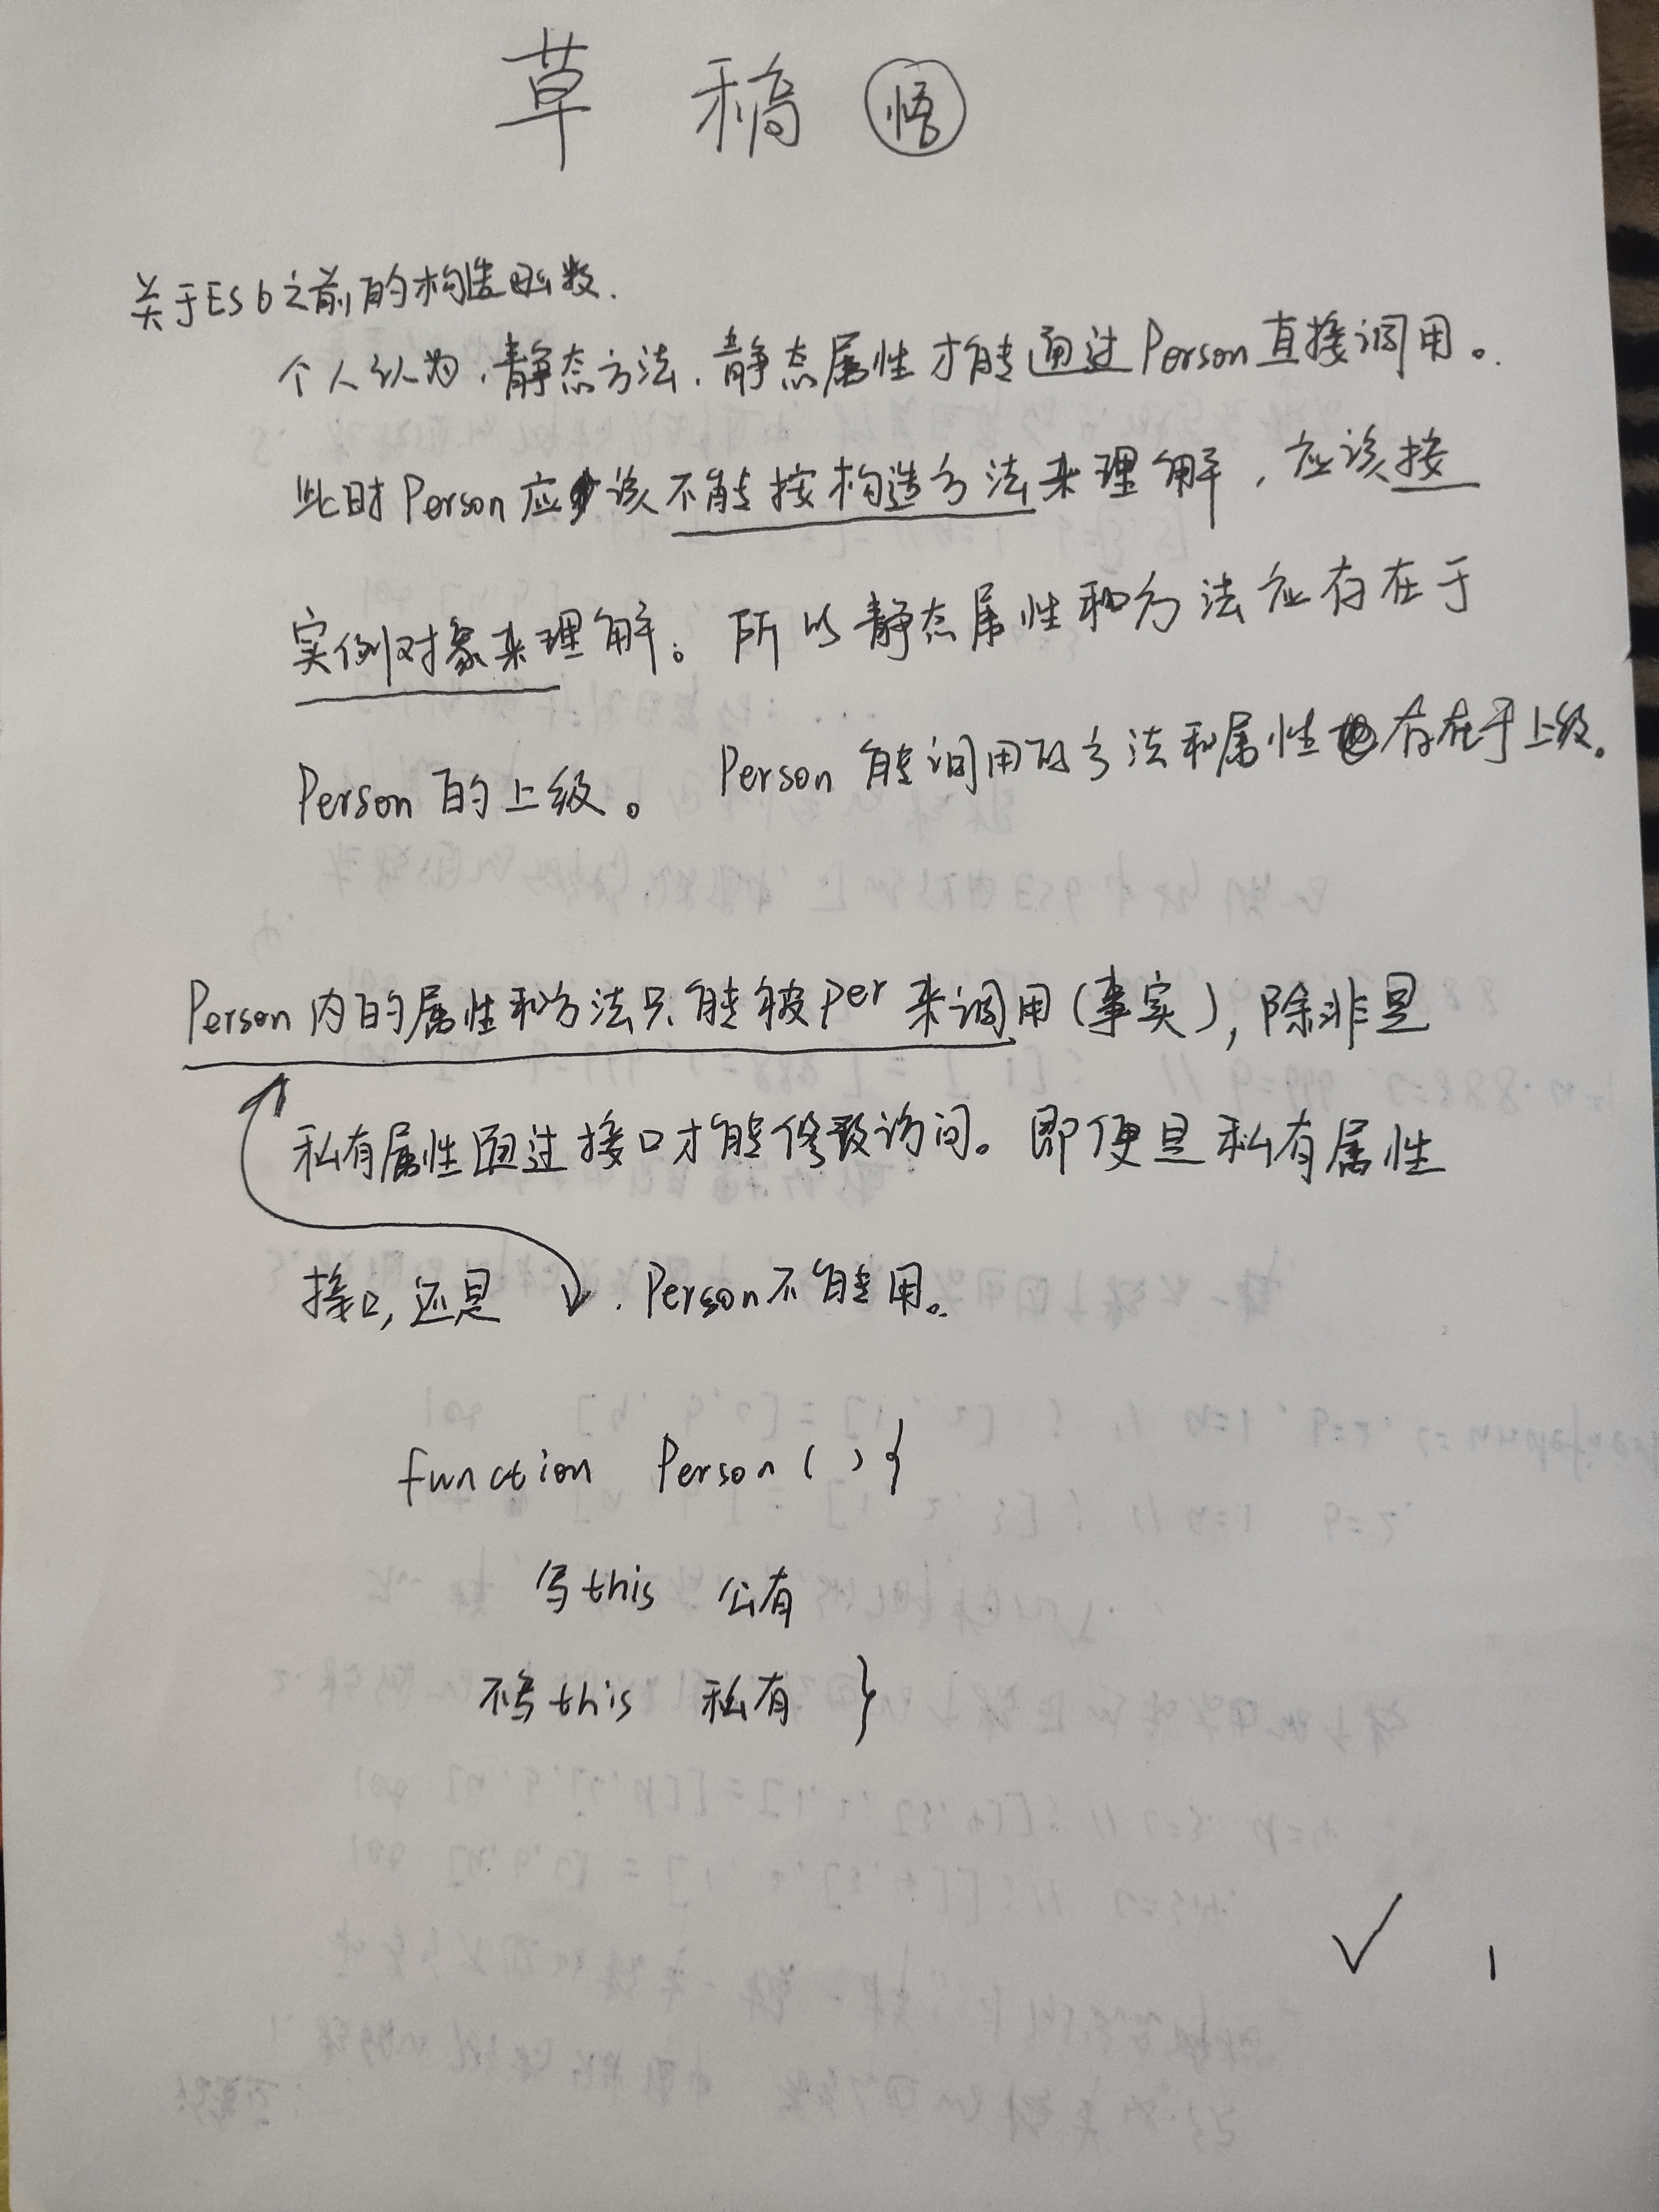 草 稿 悟
关于ES6之前的构造函数.
个人认为,静态方法、静态属性才能通过Person直接调用。
此时Person应该不能按构造方法来理解,应该按
实例对象来理解。所以静态属性和方法应存在于
Person的上级。 Person能调用的方法和属性 存在于上级。
Person内的属性和方法只能被per来调用(事实),除非是
私有属性通过接口才能修改访问。即便是私有属性
接口,还是 . Person不能用。
function Person(){
写this 公有
不写this 私有 }
√ 1